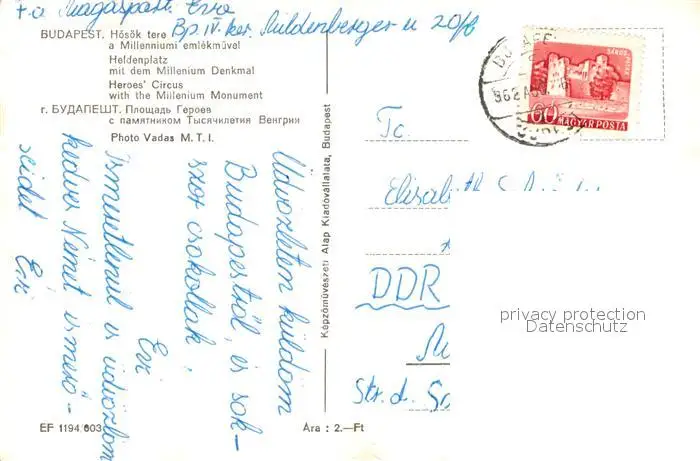 Fa Magaspart. Erve
Bp. IV. ker. Mildenberger u 20/b
BUDAPEST. Hősök tere
a Millenniumi emlékművel
Heldenplatz
mit dem Millenium Denkmal
Heroes' Circus
with the Millenium Monument
г. БУДАПЕШТ. Площадь Героев
с памятником Тысячилетия Венгрии
Photo Vadas M. T. I.
Üdvözletem küldöm
Budapestről, és sok-
szor csókollak:
Erzi
Ismeretlenül is üdvözlöm
kedves Német ismerő-
seidet Erzi
EF 1194/603
Képzőművészeti Alap Kiadóvállalata, Budapest
Ára : 2.—Ft
SÁROSPATAK
60
MAGYAR POSTA
Tc.
Elisabeth
DDR
Str. d.
privacy protection
Datenschutz